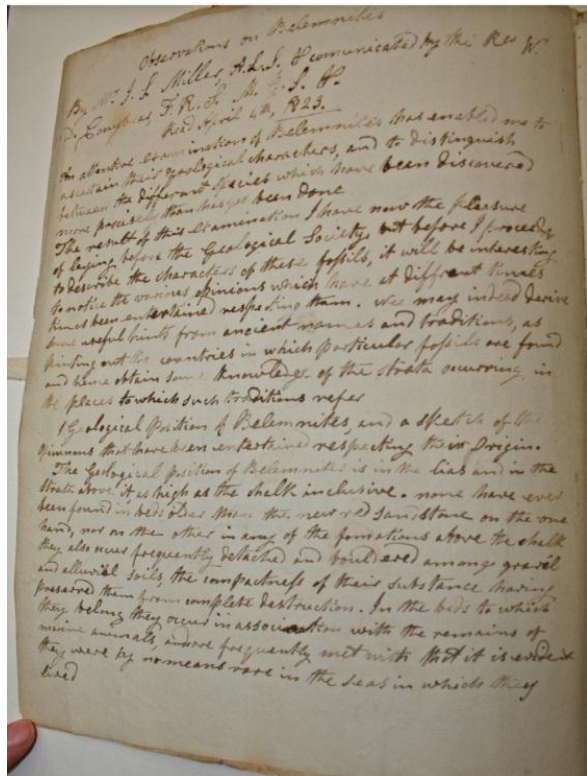 Observations on Belemnites
By Mr. J. S. Miller, A.L.S. & communicated by the Rev W.
D. Conybeare, F. R. S. M. G. S. &c.
Read April 4th, 1823.
An attentive examination of Belemnites has enabled me to
ascertain their zoological characters, and to distinguish
between the different species which have been discovered
more precisely than has yet been done
The result of this examination I have now the pleasure
of laying before the Geological Society, but before I proceed
to describe the characters of these fossils, it will be interesting
to notice the various opinions which have at diffrent times
times been entertained respecting them. We may indeed derive
some useful hints from ancient names and traditions, as
pointing out the countries in which particular fossils are found
and hence obtain some knowledge of the strata occurring in
the places to which such traditions refer
1 Geological Position of Belemnites, and a sketch of the
Opinions that have been entertained respecting their Origin.
The Geological position of Belemnites is in the lias and in the
strata above it as high as the chalk inclusive. none have ever
been found in beds older than the new red sandstone on the one
hand, nor on the other in any of the formations above the chalk
they also occur frequently detached and bouldered among gravel
and alluvial soils, the compactness of their substance having
preserved them from complete destruction. In the beds to which
they belong they occur in association with the remains of
marine animals, and are frequently met with that it is evident
they were by no means rare in the seas in which they
lived